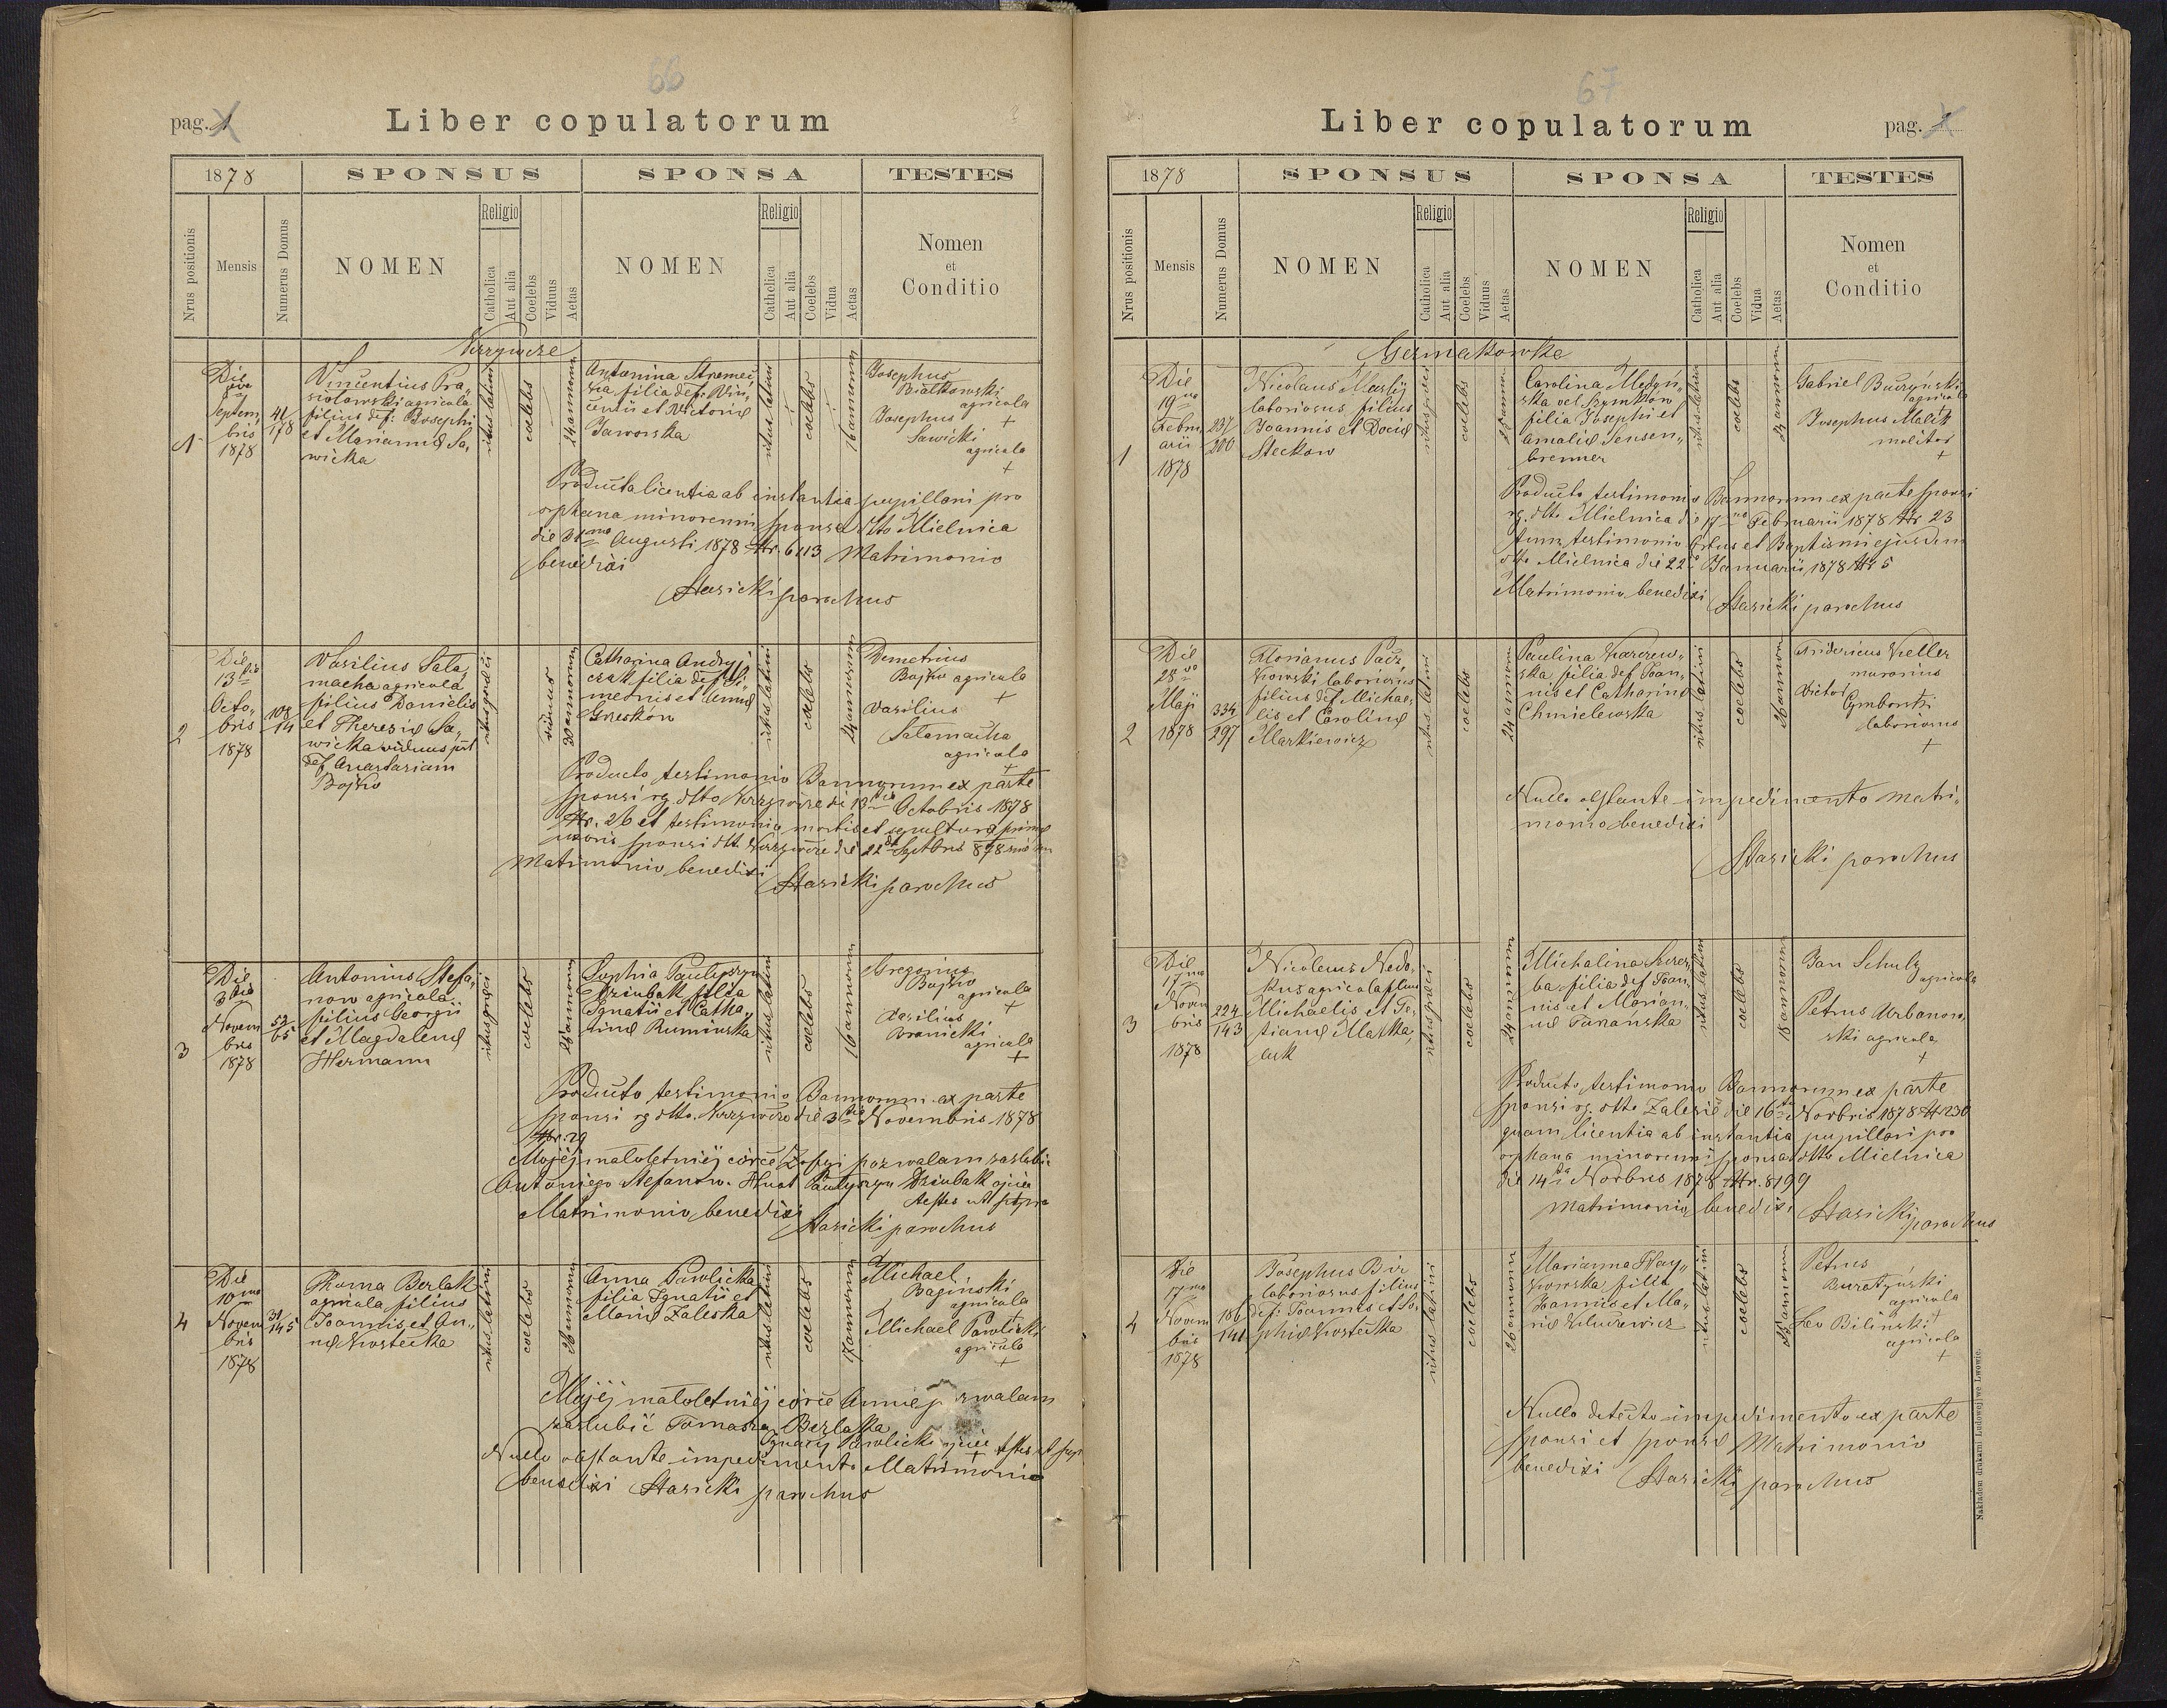 66
pag. 1
Liber copulatorum
1878
SPONSUS
SPONSA
TESTES
Nrus positionis
Mensis
Numerus Domus
NOMEN
Religio
Catholica
Aut alia
Coelebs
Viduus
Aetas
NOMEN
Religio
Catholica
Aut alia
Coelebs
Vidua
Aetas
Nomen
et
Conditio
1
Die
Septem
bris
1878
41
178
Vincentius Pra„
siolowski agricola
filius def: Josephi
et Mariannæ Sa„
wicka
ritus latini
coelebs
24 annorum
Antonina
filia def. Vin„
centii et Victoriæ
Jaworska
ritus latini
coelebs
16 annorum
Josephus
Białkowski
agricola
+
Josephus
Sawicki
agricola
+
Producta licentia ab instantia pupillari pro
orphana minorenni sponsa dtto Mielnica
die 31ma Augusti 1878 Nr. 6113 Matrimonio
benedixi
Stasicki parochus
2
Die
13tia
Octo„
bris
1878
108
14
Vasilius Sala„
macha agricola
filius Danielis
et Theresiæ Sa„
wicka viduus pst
def Anastasiam
Bojko
viduus
30 annorum
Catharina Andryj
czuk filia def Si„
meonis et Annæ
Greskow
ritus latini
coelebs
24 annorum
Demetrius
Bojko agricola
+
Vasilius
Salamacha
agricola
+
Producto testimonio Bannorum ex parte
sponsi rg. dtto Krzywcze die 13tia Octobris 1878
Nr. 26 et testimonio mortis et sepulturæ primæ
uxoris sponsi dtt. Krzywcze die 22da Septbris 878
Matrimonio benedixi
Stasicki parochus
3
Die
3tia
Novem
bris
1878
52
65
Antonius Stefa„
now agricola
filius Georgii
et Magdalenæ
Hermann
ritus græci
coelebs
Sophia Paulyszyn
Dziubak filia
Ignatii et Catha„
rinæ Ruminska
ritus latini
coelebs
16 annorum
Gregorius
Bojko
agricola
+
Vasilius
Wranicki
agricola
+
Producto testimonio Bannorum ex parte
sponsi rg dtto. Krzywcze die 3tia Novembris 1878
Nr. 29
Mojéj małoletniéj córce Zofyi pozwalam zaslubić
Antoniego Stefanow. Paulyszyn Dziubak ojciec
testes ut supra
Matrimonio benedixi
Stasicki parochus
4
Die
10ma
Novem
bris
1878
31
145
Thoma Berlak
agricola filius
Joannis et An„
næ Kostecka
ritus latini
coelebs
26 annorum
Anna Pawlicka
filia Ignatii et
Mariæ Zaleska
ritus latini
coelebs
17 annorum
Michael
Baginski
agricola
+
Michael Pawlicki
agricola
+
Mojéj małoletniéj córce Annie zwalam
zaslubić Tomasza Berlaka
Ignacy Pawlicki ojciec
Nullo obstante impedimento Matrimonio
benedixi Stasicki parochus
67
Liber copulatorum
pag.
1878
SPONSUS
SPONSA
TESTES
Nrus positionis
Mensis
Numerus Domus
NOMEN
Religio
Catholica
Aut alia
Coelebs
Viduus
Aetas
NOMEN
Religio
Catholica
Aut alia
Coelebs
Vidua
Aetas
Nomen
et
Conditio
Germakowka
1
Die
19na
Febru
arii
1878
237
200
Nicolaus
laboriosus, filius
Joannis et Dociæ
Steckow
coelebs
Carolina Medyń„
ska vel Szymkow
filia Josephi et
Amaliæ Sensen„
brenner
ritus latini
coelebs
24 annorum
Gabriel Buczyński
agricola
+
Josephus
molitor
+
Producto testimonio Bannorum ex parte sponsi
rg. dtto Mielnica die 17ma Februarii 1878 Nr. 23
tum testimonio Ortus et Baptismi ejusdem
dtto Mielnica die 22da Januarii 1878 Nr 5
Matrimonio benedixi
Stasicki parochus
2
Die
28va
Maji
1878
334
297
Florianus Pacz„
kowski laboriosus
filius def Michae„
lis et Carolinæ
Markiewicz
ritus latini
coelebs
24 annorum
Paulina Karczew„
ska filia def Joan„
nis et Catharinæ
Chmielewska
ritus latini
coelebs
26 annorum
Fridericus Keller
murarius
Victor
laboriosus
+
Nullo obstante impedimento Matri„
monio benedixi
Stasicki parochus
3
Die
17ma
Novem
bris
1878
224
143
Nicolaus Nedo„
kus agricola filius
Michaelis et Te„
tianæ Matka„
luk
coelebs
24 annorum
Michalina
filia def Joan„
nis et Marian„
næ Taranska
ritus latini
coelebs
18 annorum
Jan Schulz
agricola
Petrus Urbanow„
ski agricola
+
Producto testimonio Bannorum ex parte
sponsi rg. dtto Zalesie die 16ta Novbris 1878 Nr 230
quam licentia ab instantia pupillari pro
orphana minorenni sponsa dtto Mielnica
die 14ta Novbris 1878 Nr. 8199
Matrimonio benedixi Stasicki
parochus
4
Die
17ma
Novem
bris
1878
186
141
Josephus Bir
laboriosus filius
def: Joannis et So„
phiæ Kostecka
ritus latini
coelebs
26 annorum
Marianna Hay„
worska filia
Joannis et Ma„
riæ
ritus latini
coelebs
Petrus
agricola
+
Leo Bilinski
agricola
+
Nullo detecto impedimento ex parte
sponsi et sponsæ Matrimonio
benedixi Stasicki parochus
Nakładem drukarni Ludowej we Lwowie.